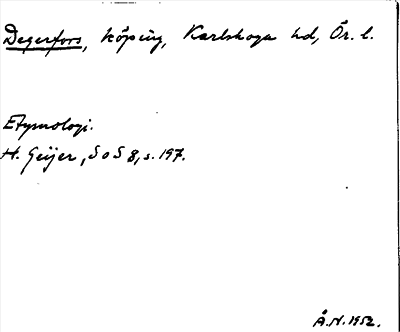 Degerfors, köping, Karlskoga hd, Ör. l.
Etymologi.
H. Geijer, SoS 8, s. 197.
Å.N. 1952.